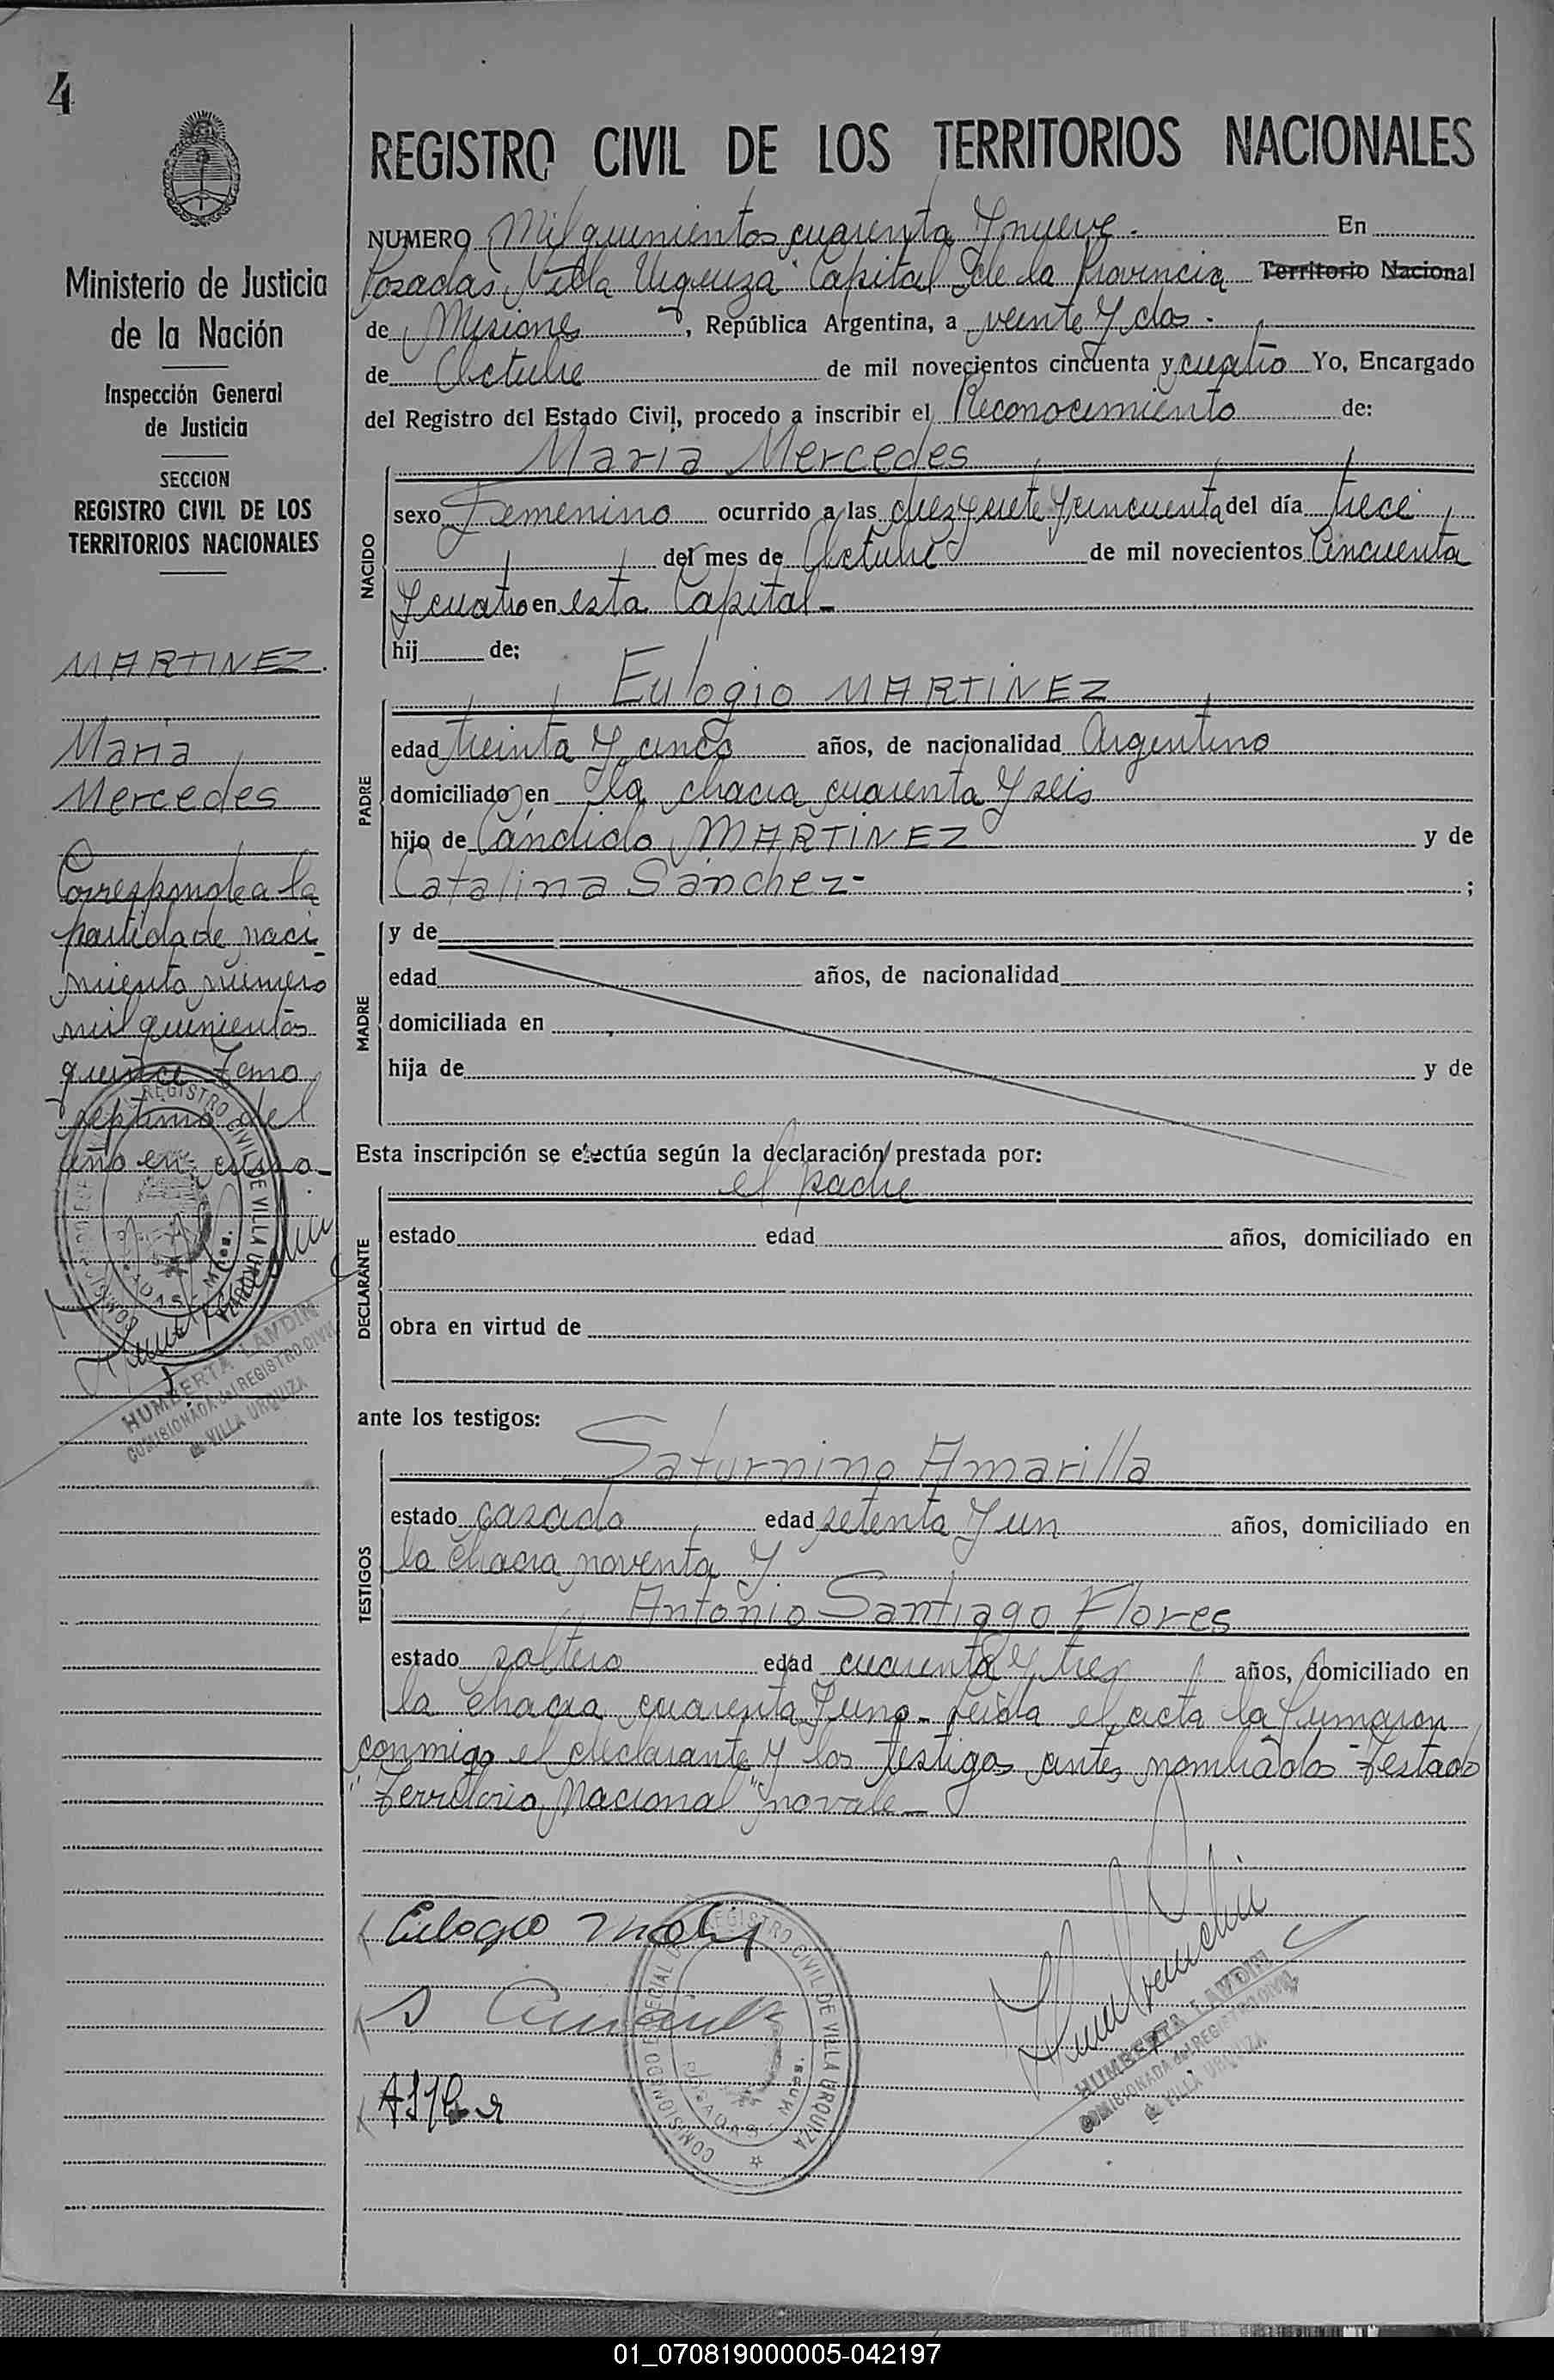 4
Ministerio de Justicia
de la Nación
Inspección General
de Justicia
SECCION
REGISTRO CIVIL DE LOS
TERRITORIOS NACIONALES
MARTINEZ.
Maria
Mercedes
Corresponde a la
partida de naci
miento número
mil quinientos
quince Tomo
septimo del
año en curso
HUMBERTA LANDIN
COMISIONADA del REGISTRO CIVIL
de VILLA URQUIZA
REGISTRO CIVIL DE LOS TERRITORIOS NACIONALES
NUMERO Mil quinientos cuarenta y nueve.- En
Posadas Villa Urquiza Capital de la Provincia Territorio Nacional
de Misiones, República Argentina, a veinte y dos.-
de Octubre de mil novecientos cincuenta y cuatro Yo, Encargado
del Registro del Estado Civil, procedo a inscribir el Reconocimiento de:
Maria Mercedes
NACIDO
sexo Femenino ocurrido a las diez y siete y cincuenta del día trece
del mes de Octubre de mil novecientos Cincuenta
y cuatro en esta Capital-
hij de:
Eulogio MARTINEZ
PADRE
edad treinta y cinco años, de nacionalidad Argentino
domiciliado en la chacra cuarenta y seis
hijo de Cándido MARTINEZ y de
Catalina Sánchez- ;
MADRE
y de
edad años, de nacionalidad
domiciliada en
hija de y de
Esta inscripción se efectúa según la declaración prestada por:
el padre
DECLARANTE
estado edad años, domiciliado en
obra en virtud de
ante los testigos:
Saturnino Amarilla
TESTIGOS
estado casado edad setenta y un años, domiciliado en
la chacra noventa y
Antonio Santiago Flores
estado soltero edad cuarenta y tres años, domiciliado en
la chacra cuarenta y uno- Leída el acta la firmaron
conmigo el declarante y los testigos antes nombrados- Testado
"Territorio Nacional" no vale-
Eulogio
COMISIONADO ESPECIAL REGISTRO CIVIL DE VILLA URQUIZA
HUMBERTA LANDIN
COMISIONADA del REGISTRO CIVIL
de VILLA URQUIZA
01_070819000005-042197